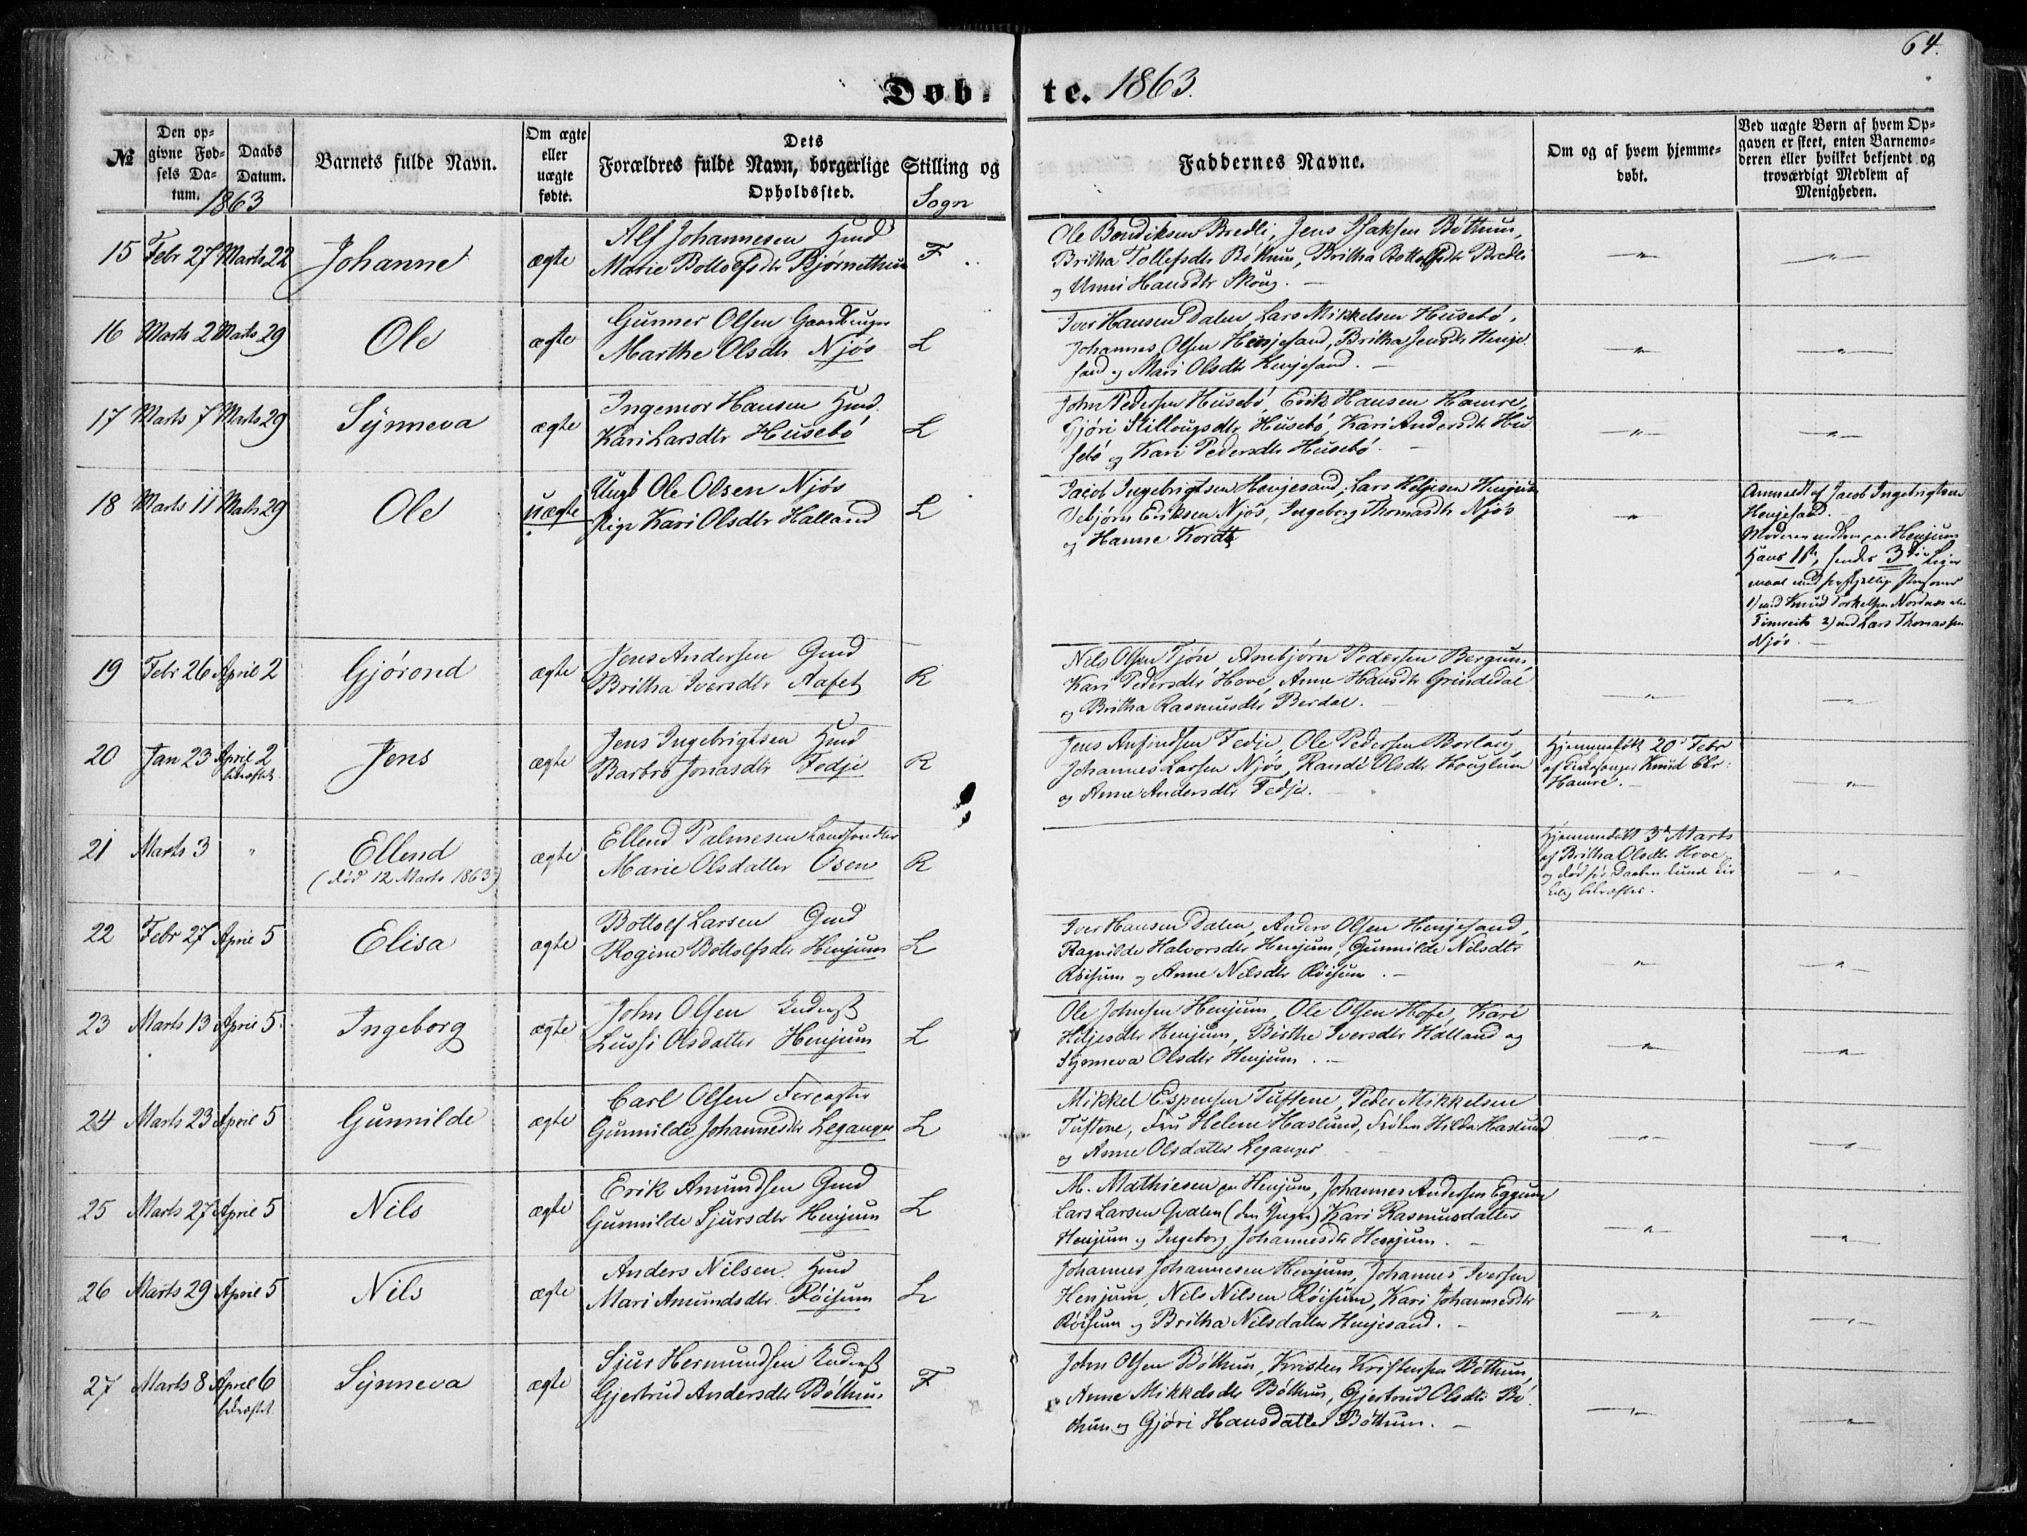 64.
Døb- te. 1863.
№
Den opgivne Fødsels Datum.
Daabs Datum.
1863
Barnets fulde Navn.
Om ægte eller uægte fødte.
Dets Forældres fulde Navn, borgerlige Stilling og Opholdssted.
Sogn
Faddernes Navne.
Om og af hvem hjemmedøbt.
Ved uægte Børn af hvem Opgaven er skeet, enten Barnemoderen eller hvilket bekjendt og troværdigt Medlem af Menigheden.
15 Febr 27 Marts 22 Johanne ægte
Alf Johannesen Hmd
Marie Bottolfsdtr Bjørnethun F
Ole Bendiksen Bredli, Jens Isaksen Bøthun,
Britha Tollefsdtr Bøthun, Britha Bottolfsdtr Bredli
og Unni Hansdtr Skoug. —
16 Marts 2 Marts 29 Ole ægte
Gunner Olsen Gaardbruger
Marthe Olsdtr Njøs L
Iver Hansen Dalen, Lars Mikkelsen Husebö,
Johannes Olsen Henjesand, Britha Jensdtr Henje
sand og Mari Olsdtr Henjesand. —
17 Marts 7 Marts 29 Synneva ægte
Ingemor Hansen Hmd
Kari Larsdtr Husebö L
John Pedersen Husebö, Erik Hansen Hamre,
Gjöri Stillougsdtr Husebö, Kari Andersdtr Hu
sebö og Kari Pedersdtr Husebö.
18 Marts 11 Marts 29 Ole uægte
Ungk Ole Olsen Njös
Pige Kari Olsdtr Halland L
Jacob Ingebrigtsen Henjesand, Lars Heljesen Henjum
Vebjörn Eriksen Njös, Ingeborg Thomasdtr Njös
og Hanne Kordt
Anmeldt af Jacob Ingebrigtsen
Henjesand. —
Moderen
Henjum
Hans 1ste, hendes 3die Leier
maal med forskjellige Personer
1) med Knud Torkelsen Nordnæs
2) med Lars Thomassen
Njös —
19 Febr 26 April 2 Gjørond ægte
Jens Andersen Gmd
Britha Iversdtr Aafet R
Nils Olsen Tjøn, Arnbjørn Pedersen Bergum,
Kari Pedersdtr Hove, Anne Hansdtr Grindedal
og Britha Rasmusdtr Berdal. —
20 Jan 23 April 2 bekræftet. Jens ægte
Jens Ingebrigtsen Hmd
Barbro Jonasdtr Fedje R
Jens Anfindsen Fedje, Ole Pedersen Borlaug,
Johannes Larsen Njös, Randi Olsdtr Houglum
og Anne Andersdtr Fedje. —
Hjemmedöbt 20 Febr
af Kirkesanger Knud Chr:
Hamre. —
21 Marts 3 " Ellend
(död 12 Marts 1863) ægte
Ellend Palmesen Landhandler
Marie Olsdatter Osen R
Hjemmedöbt 3d Marts
af Britha Olsdtr Hove,
og död för Daaben kunde
bekræftes.
22 Febr 27 April 5 Elisa ægte
Bottolf Larsen Gmd
Rogine Bottolfsdtr Henjum L
Iver Hansen Dalen, Anders Olsen Henjesand,
Ragnilde Halvorsdtr Henjum, Gunnilde Nilsdtr
Röisum og Anne Nilsdtr Röisum. —
23 Marts 13 April 5 Ingeborg ægte
John Olsen Inderst
Lussi Olsdatter Henjum L
Ole Johnsen Henjum, Ole Olsen Hofe, Kari
Heljesdtr Henjum, Birthe Iversdtr Halland og
Synneva Olsdtr Henjum. —
24 Marts 23 April 5 Gunnilde ægte
Carl Olsen
Gunnilde Johannesdtr Leganger L
Mikkel Espensen Tuftene, Peder Mikkelsen
Tuftene, Fru Helene Haslund, Fröken Hilda Haslund
og Anne Olsdatter Leganger
25 Marts 27 April 5 Nils ægte
Erik Amundsen Gmd
Gunnilde Sjursdtr Henjum L
M. Mathiesen Henjum, Johannes Andersen Eggum
Lars Larsen Gvalen (den Yngre) Kari Rasmusdatter
Henjum og Ingeborg Johannesdtr Henjum. —
26 Marts 29 April 5 Nils ægte
Anders Nilsen Hmd
Mari Amundsdtr Röisum L
Johannes Johannesen Henjum, Johannes Iversen
Henjum, Nils Nilsen Röisum, Kari Johannesdtr
Röisum og Britha Nilsdatter Henjesand. —
27 Marts 8 April 6 bekræftet Synneva ægte
Sjur Hermundsen Inderst
Gjertrud Andersdtr Bøthun F
John Olsen Bøthun, Kristen Kristensen Bøthun,
Anne Mikkelsdtr Bøthun, Gjertrud Olsdtr Bö
thun og Gjöri Hansdatter Bøthun. —